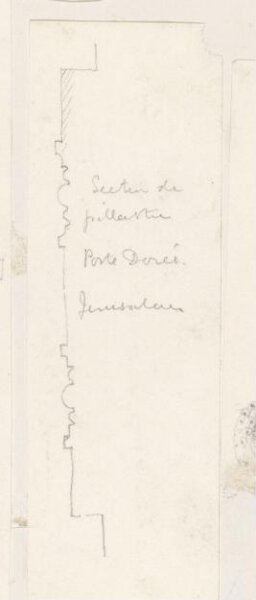 Section de
pillastre
Porte Dorée.
Jerusalem